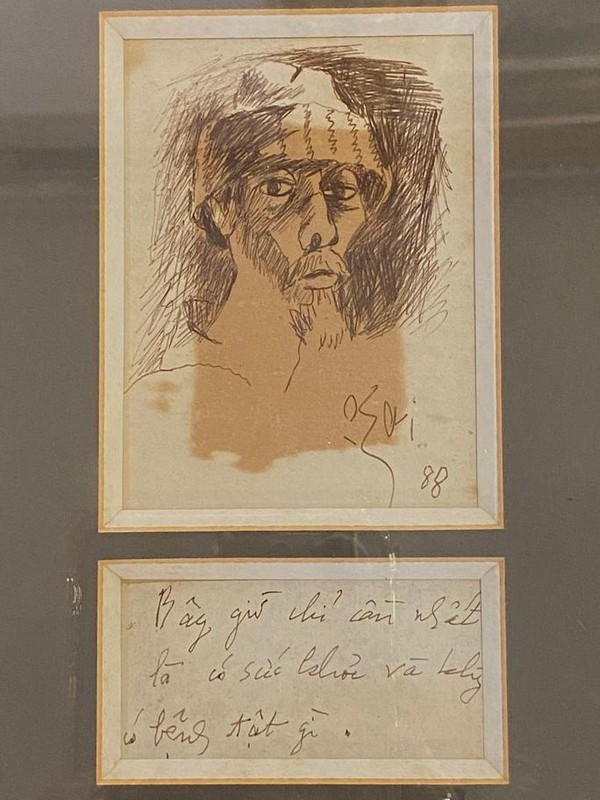 Phái
88
Bây giờ chỉ cần nhất
là có sức khỏe và không
có bệnh tật gì .